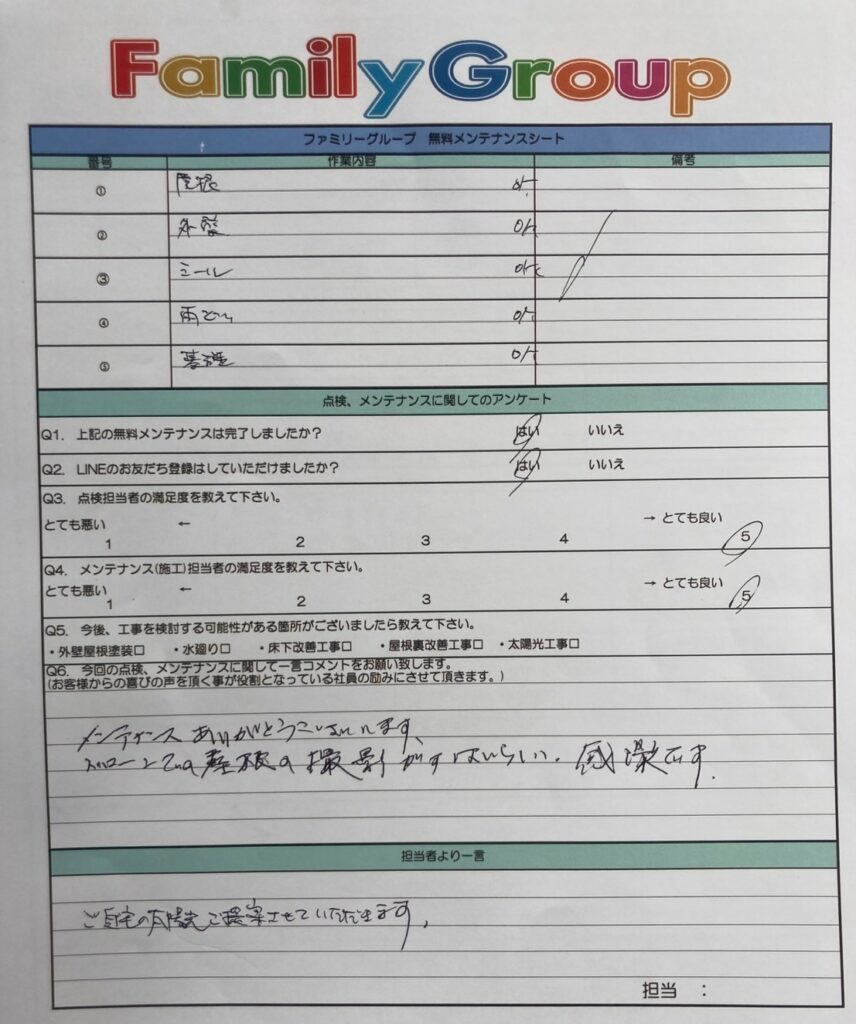 Family Group
ファミリーグループ 無料メンテナンスシート
番号 作業内容 備考
① 屋根 ok
② 外壁 ok
③ シール ok
④ 雨どい ok
⑤ 基礎 ok
点検、メンテナンスに関してのアンケート
Q1. 上記の無料メンテナンスは完了しましたか? はい いいえ
Q2. LINEのお友だち登録はしていただけましたか? はい いいえ
Q3. 点検担当者の満足度を教えて下さい。
とても悪い ← → とても良い
1 2 3 4 5
Q4. メンテナンス(施工)担当者の満足度を教えて下さい。
とても悪い ← → とても良い
1 2 3 4 5
Q5. 今後、工事を検討する可能性がある箇所がございましたら教えて下さい。
・外壁屋根塗装□ ・水廻り□ ・床下改善工事□ ・屋根裏改善工事□ ・太陽光工事□
Q6. 今回の点検、メンテナンスに関して一言コメントをお願い致します。
(お客様からの喜びの声を頂く事が役割となっている社員の励みにさせて頂きます。)
メンテナンスありがとうございます、
ドローンでの屋根の撮影がすばらしい、感激です。
担当者より一言
ご自宅の太陽光ご提案させていただきます。
担当 :